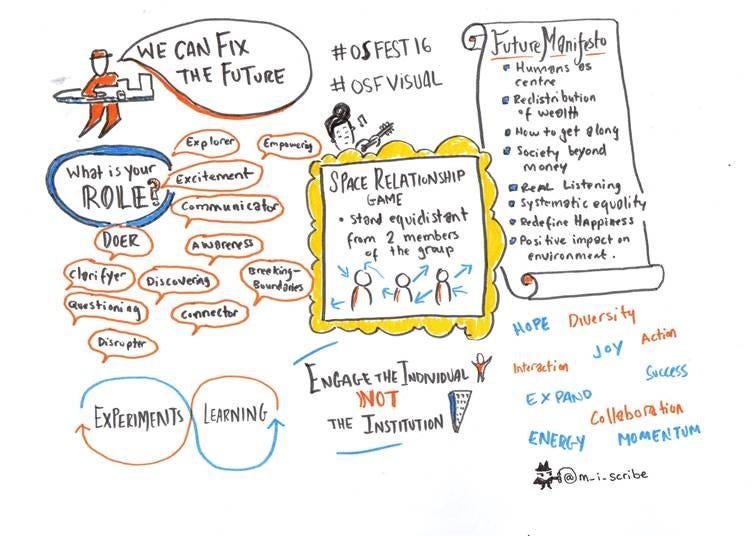 WE CAN FIX
THE FUTURE
#OSFEST16
#OSFVISUAL
Future Manifesto
Humans as
centre
Redistribution
of wealth
How to get along
Society beyond
money
REAL Listening
Systematic equality
Redefine Happiness
Positive impact on
environment.
What is your
ROLE?
Explorer
Empowering
Excitement
Communicator
DOER
Awareness
Clarifyer
Discovering
Breaking-
Boundaries
Questioning
Connector
Disrupter
SPACE RELATIONSHIP
GAME
• Stand equidistant
from 2 members
of the group
EXPERIMENTS
LEARNING
ENGAGE THE INDIVIDUAL
NOT
THE INSTITUTION
HOPE
Diversity
Action
JOY
Interaction
Success
EXPAND
Collaboration
ENERGY
MOMENTUM
@m_i_scribe